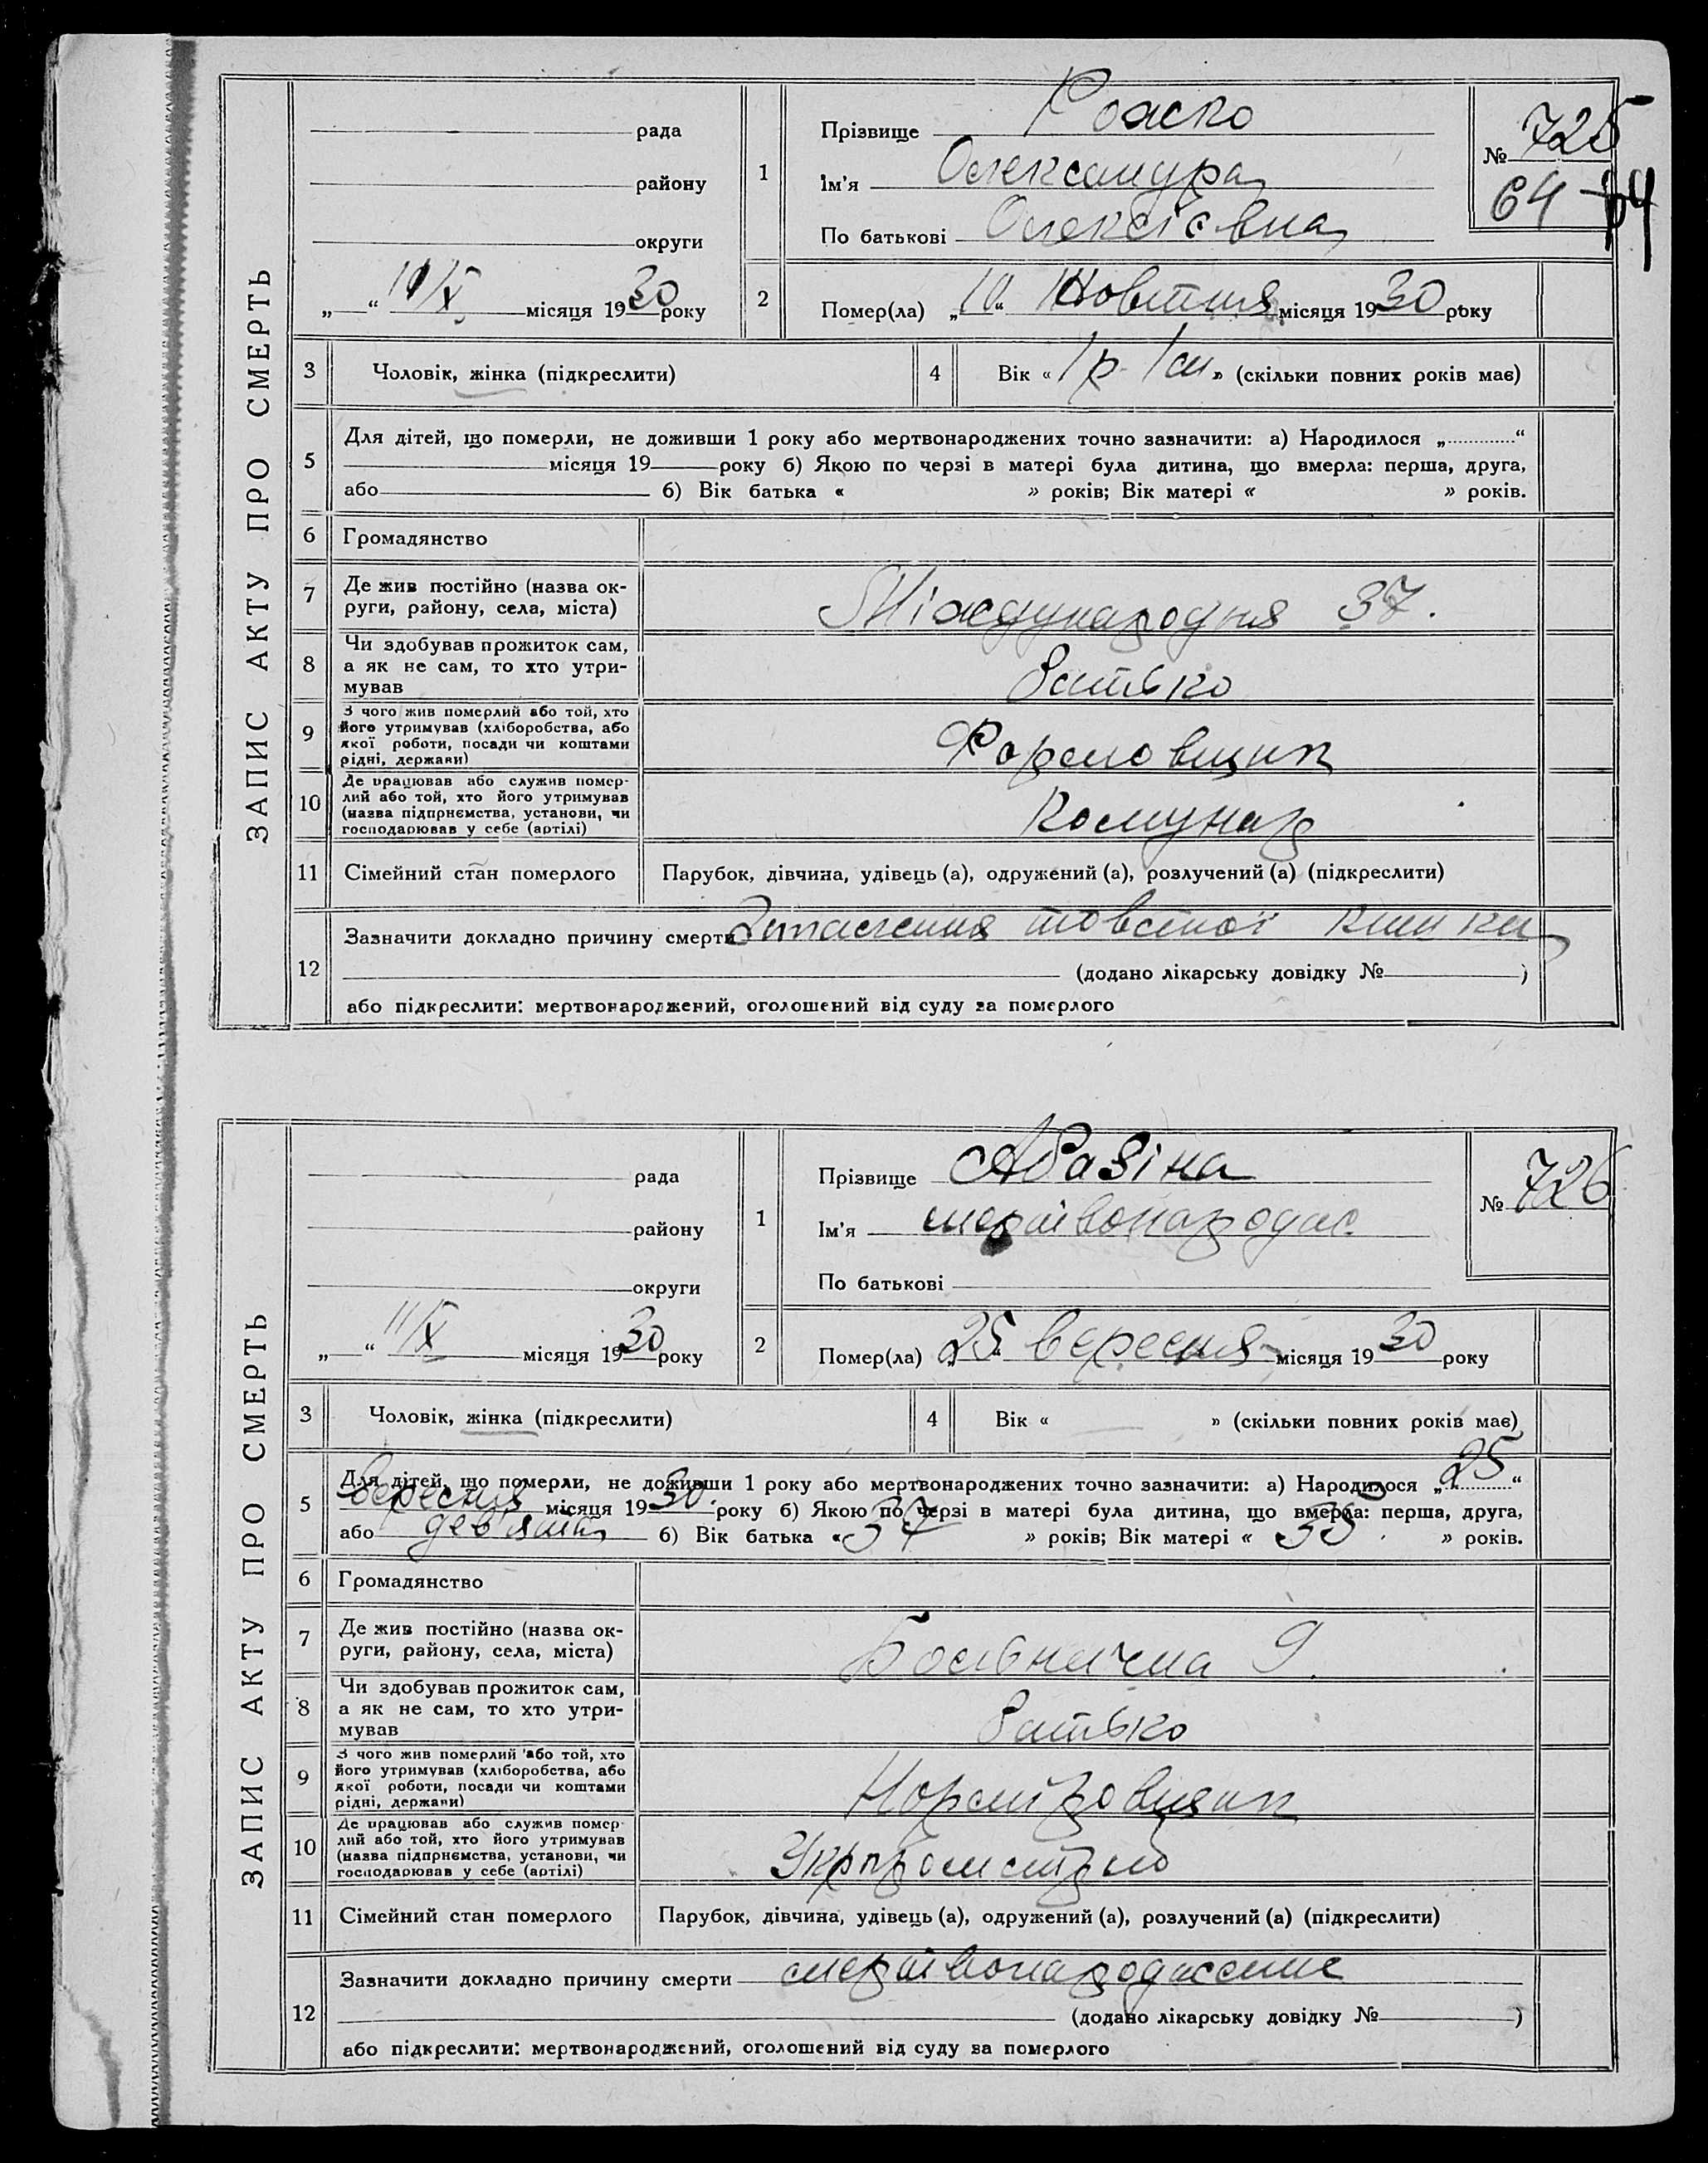 ЗАПИС АКТУ ПРО СМЕРТЬ
рада
району
округи
„ “ 11/X місяця 1930 року
1
Прізвище
Ім'я Олександра
По батькові Олексієвна
№ 725
64 64
2
Помер(ла) „10“ Жовтня місяця 1930 року
3
Чоловік, жінка (підкреслити)
4
Вік « 1 р. 1 м » (скільки повних років має)
5
Для дітей, що померли, не доживши 1 року або мертвонароджених точно зазначити: а) Народилося „ “
місяця 19 року б) Якою по черзі в матері була дитина, що вмерла: перша, друга,
або б) Вік батька « » років; Вік матері « » років.
6
Громадянство
7
Де жив постійно (назва ок-
руги, району, села, міста)
Міждународня 37.
8
Чи здобував прожиток сам,
а як не сам, то хто утри-
мував
батько
9
З чого жив померлий або той, хто
його утримував (хліборобства, або
якої роботи, посади чи коштами
рідні, держави)
Формовщик
10
Де працював або служив помер-
лий або той, хто його утримував
(назва підпрнємства, установи, чи
господарював у себе (артілі)
Комунар
11
Сімейний стан померлого
Парубок, дівчина, удівець (а), одружений (а), розлучений (а) (підкреслити)
12
Зазначити докладно причину смерти Запалення товстої кишки
(додано лікарську довідку № )
або підкреслити: мертвонароджений, оголошений від суду за померлого
ЗАПИС АКТУ ПРО СМЕРТЬ
рада
району
округи
„ “ 11/X місяця 1930 року
1
Прізвище Абазіна
Ім'я мертвонародж.
По батькові
№ 726
2
Помер(ла) „25“ вересня місяця 1930 року
3
Чоловік, жінка (підкреслити)
4
Вік « — » (скільки повних років має)
5
Для дітей, що померли, не доживши 1 року або мертвонароджених точно зазначити: а) Народилося „25“
вересня місяця 1930 року б) Якою по черзі в матері була дитина, що вмерла: перша, друга,
або дев'ята б) Вік батька « 37 » років; Вік матері « 35 » років.
6
Громадянство
7
Де жив постійно (назва ок-
руги, району, села, міста)
Больнична 9.
8
Чи здобував прожиток сам,
а як не сам, то хто утри-
мував
батько
9
З чого жив померлий або той, хто
його утримував (хліборобства, або
якої роботи, посади чи коштами
рідні, держави)
Норміровщик
10
Де працював або служив помер-
лий або той, хто його утримував
(назва підпрнємства, установи, чи
господарював у себе (артілі)
11
Сімейний стан померлого
Парубок, дівчина, удівець (а), одружений (а), розлучений (а) (підкреслити)
12
Зазначити докладно причину смерти мертвонароджение
(додано лікарську довідку № )
або підкреслити: мертвонароджений, оголошений від суду за померлого